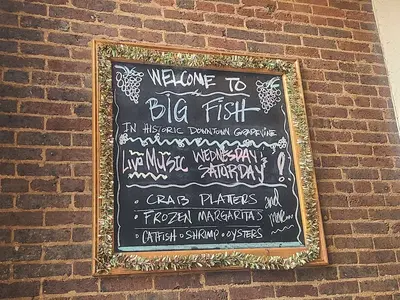 WELCOME TO
BIG FISH
IN HISTORIC DOWNTOWN GRAPEVINE
LIVE MUSIC WEDNESDAY'S
SATURDAY'S !
• CRAB PLATTERS
• FROZEN MARGARITA'S
and more...
• CATFISH • SHRIMP • OYSTERS